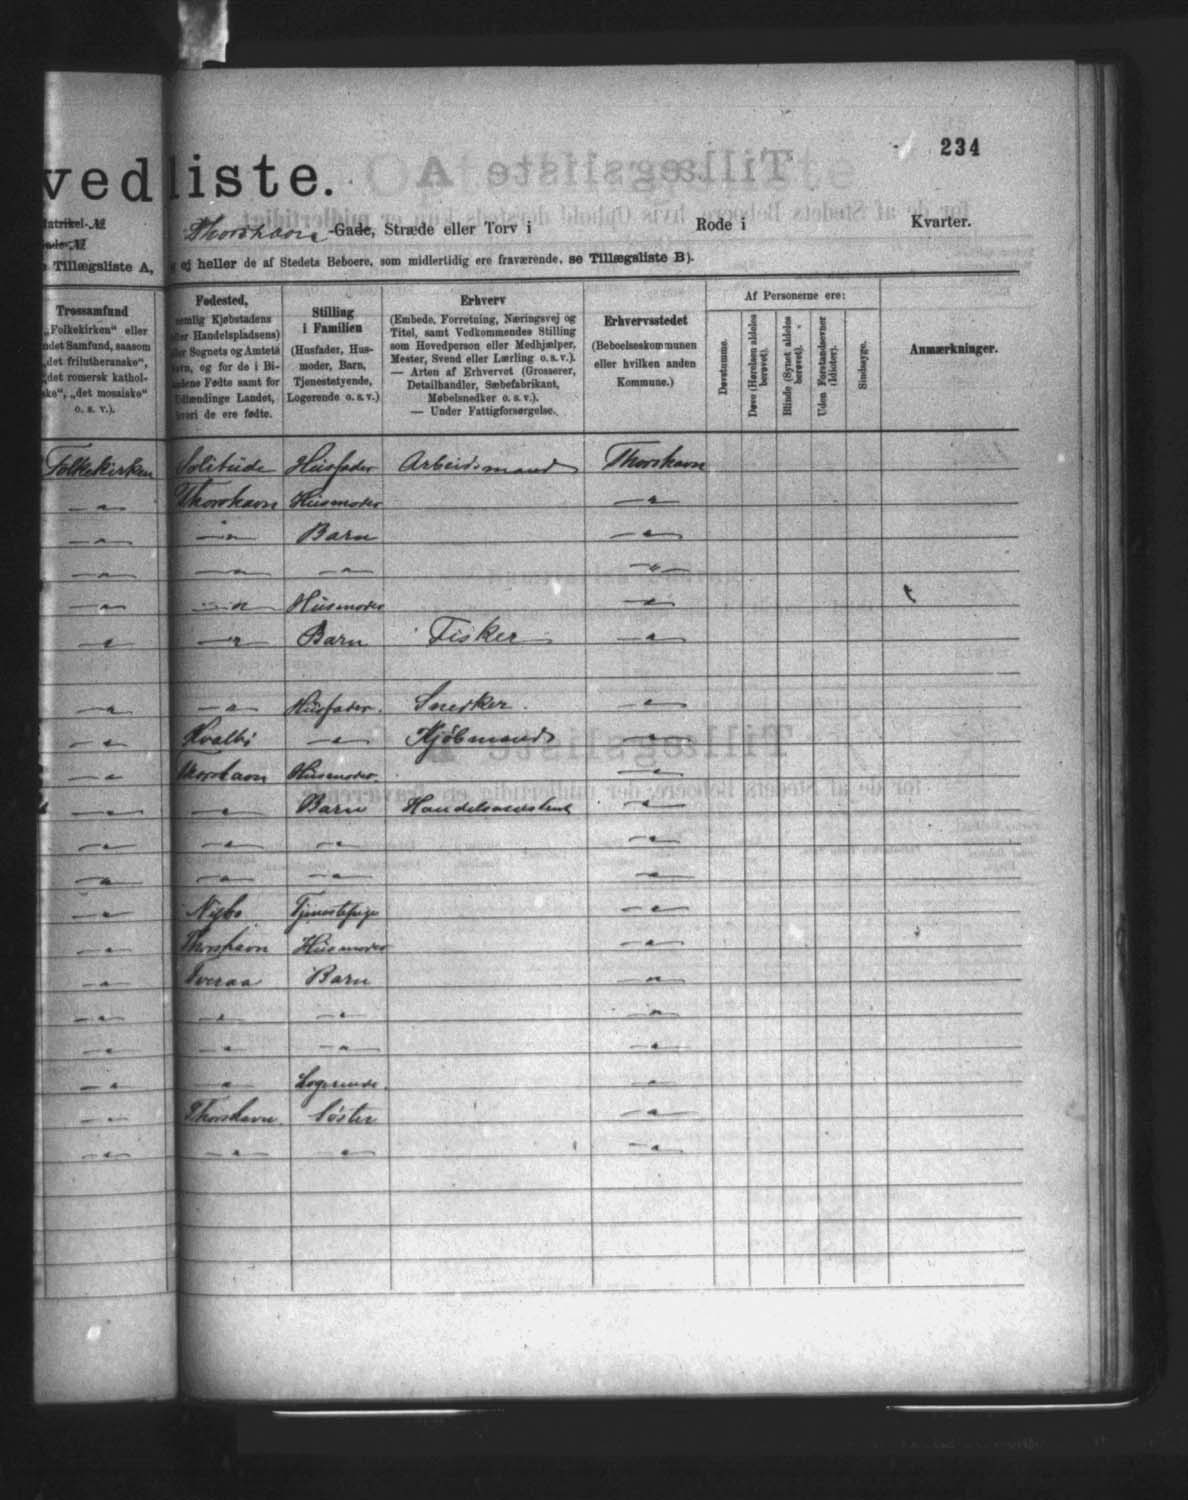 234
vedliste.
Matrikel-№ Thorshavn -Gade, Stræde eller Torv i Rode i Kvarter.
Gade-№
Tillægsliste A, ej heller de af Stedets Beboere, som midlertidig ere fraværende, se Tillægsliste B).
Trossamfund
„Folkekirken“ eller
ndet Samfund, saasom
„det frilutheranske“,
„det romersk kathol-
ske“, „det mosaiske“
o. s. v.).
Fødested,
nemlig Kjøbstadens
eller Handelspladsens)
eller Sognets og Amtets
Navn, og for de i Bi-
landene Fødte samt for
Udlændinge Landet,
hvori de ere fødte.
Stilling
i Familien
(Husfader, Hus-
moder, Barn,
Tjenestetyende,
Logerende o. s. v.)
Erhverv
(Embede, Forretning, Næringsvej og
Titel, samt Vedkommendes Stilling
som Hovedperson eller Medhjælper,
Mester, Svend eller Lærling o. s. v.).
— Arten af Erhvervet (Grosserer,
Detailhandler, Sæbefabrikant,
Møbelsnedker o. s. v.).
— Under Fattigforsørgelse.
Erhvervsstedet
(Beboelseskommunen
eller hvilken anden
Kommune.)
Af Personerne ere:
Døvstumme.
Døve (Hørelsen aldeles
berøvet).
Blinde (Synet aldeles
berøvet).
Uden Forstandsevner
(Idioter).
Sindssyge.
Anmærkninger.
Folkekirken Solitude Husfader Arbeidsmand Thorshavn
—"— Thorshavn Husmoder —"—
—"— —"— Barn —"—
—"— —"— —"— —"—
—"— —"— Husmoder —"—
—"— —"— Barn Fisker —"—
—"— —"— Husfader. Snedker. —"—
—"— Kvalbø —"— Kjøbmand —"—
—"— Thorshavn Husmoder. —"—
—"— —"— Barn Handelsassistent —"—
—"— —"— —"— —"—
—"— —"— —"— —"—
—"— Tjenestepige —"—
—"— Thorshavn Husmoder —"—
—"— Tveraa Barn —"—
—"— —"— —"— —"—
—"— —"— —"— —"—
—"— —"— Logerende. —"—
—"— Thorshavn. Søster —"—
—"— —"— —"— —"—